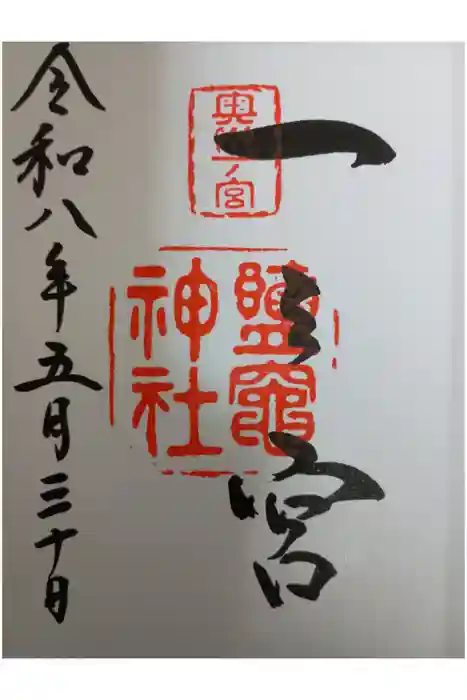 奥州一ノ宮
一之宮
鹽竈
神社
令和八年五月三十日